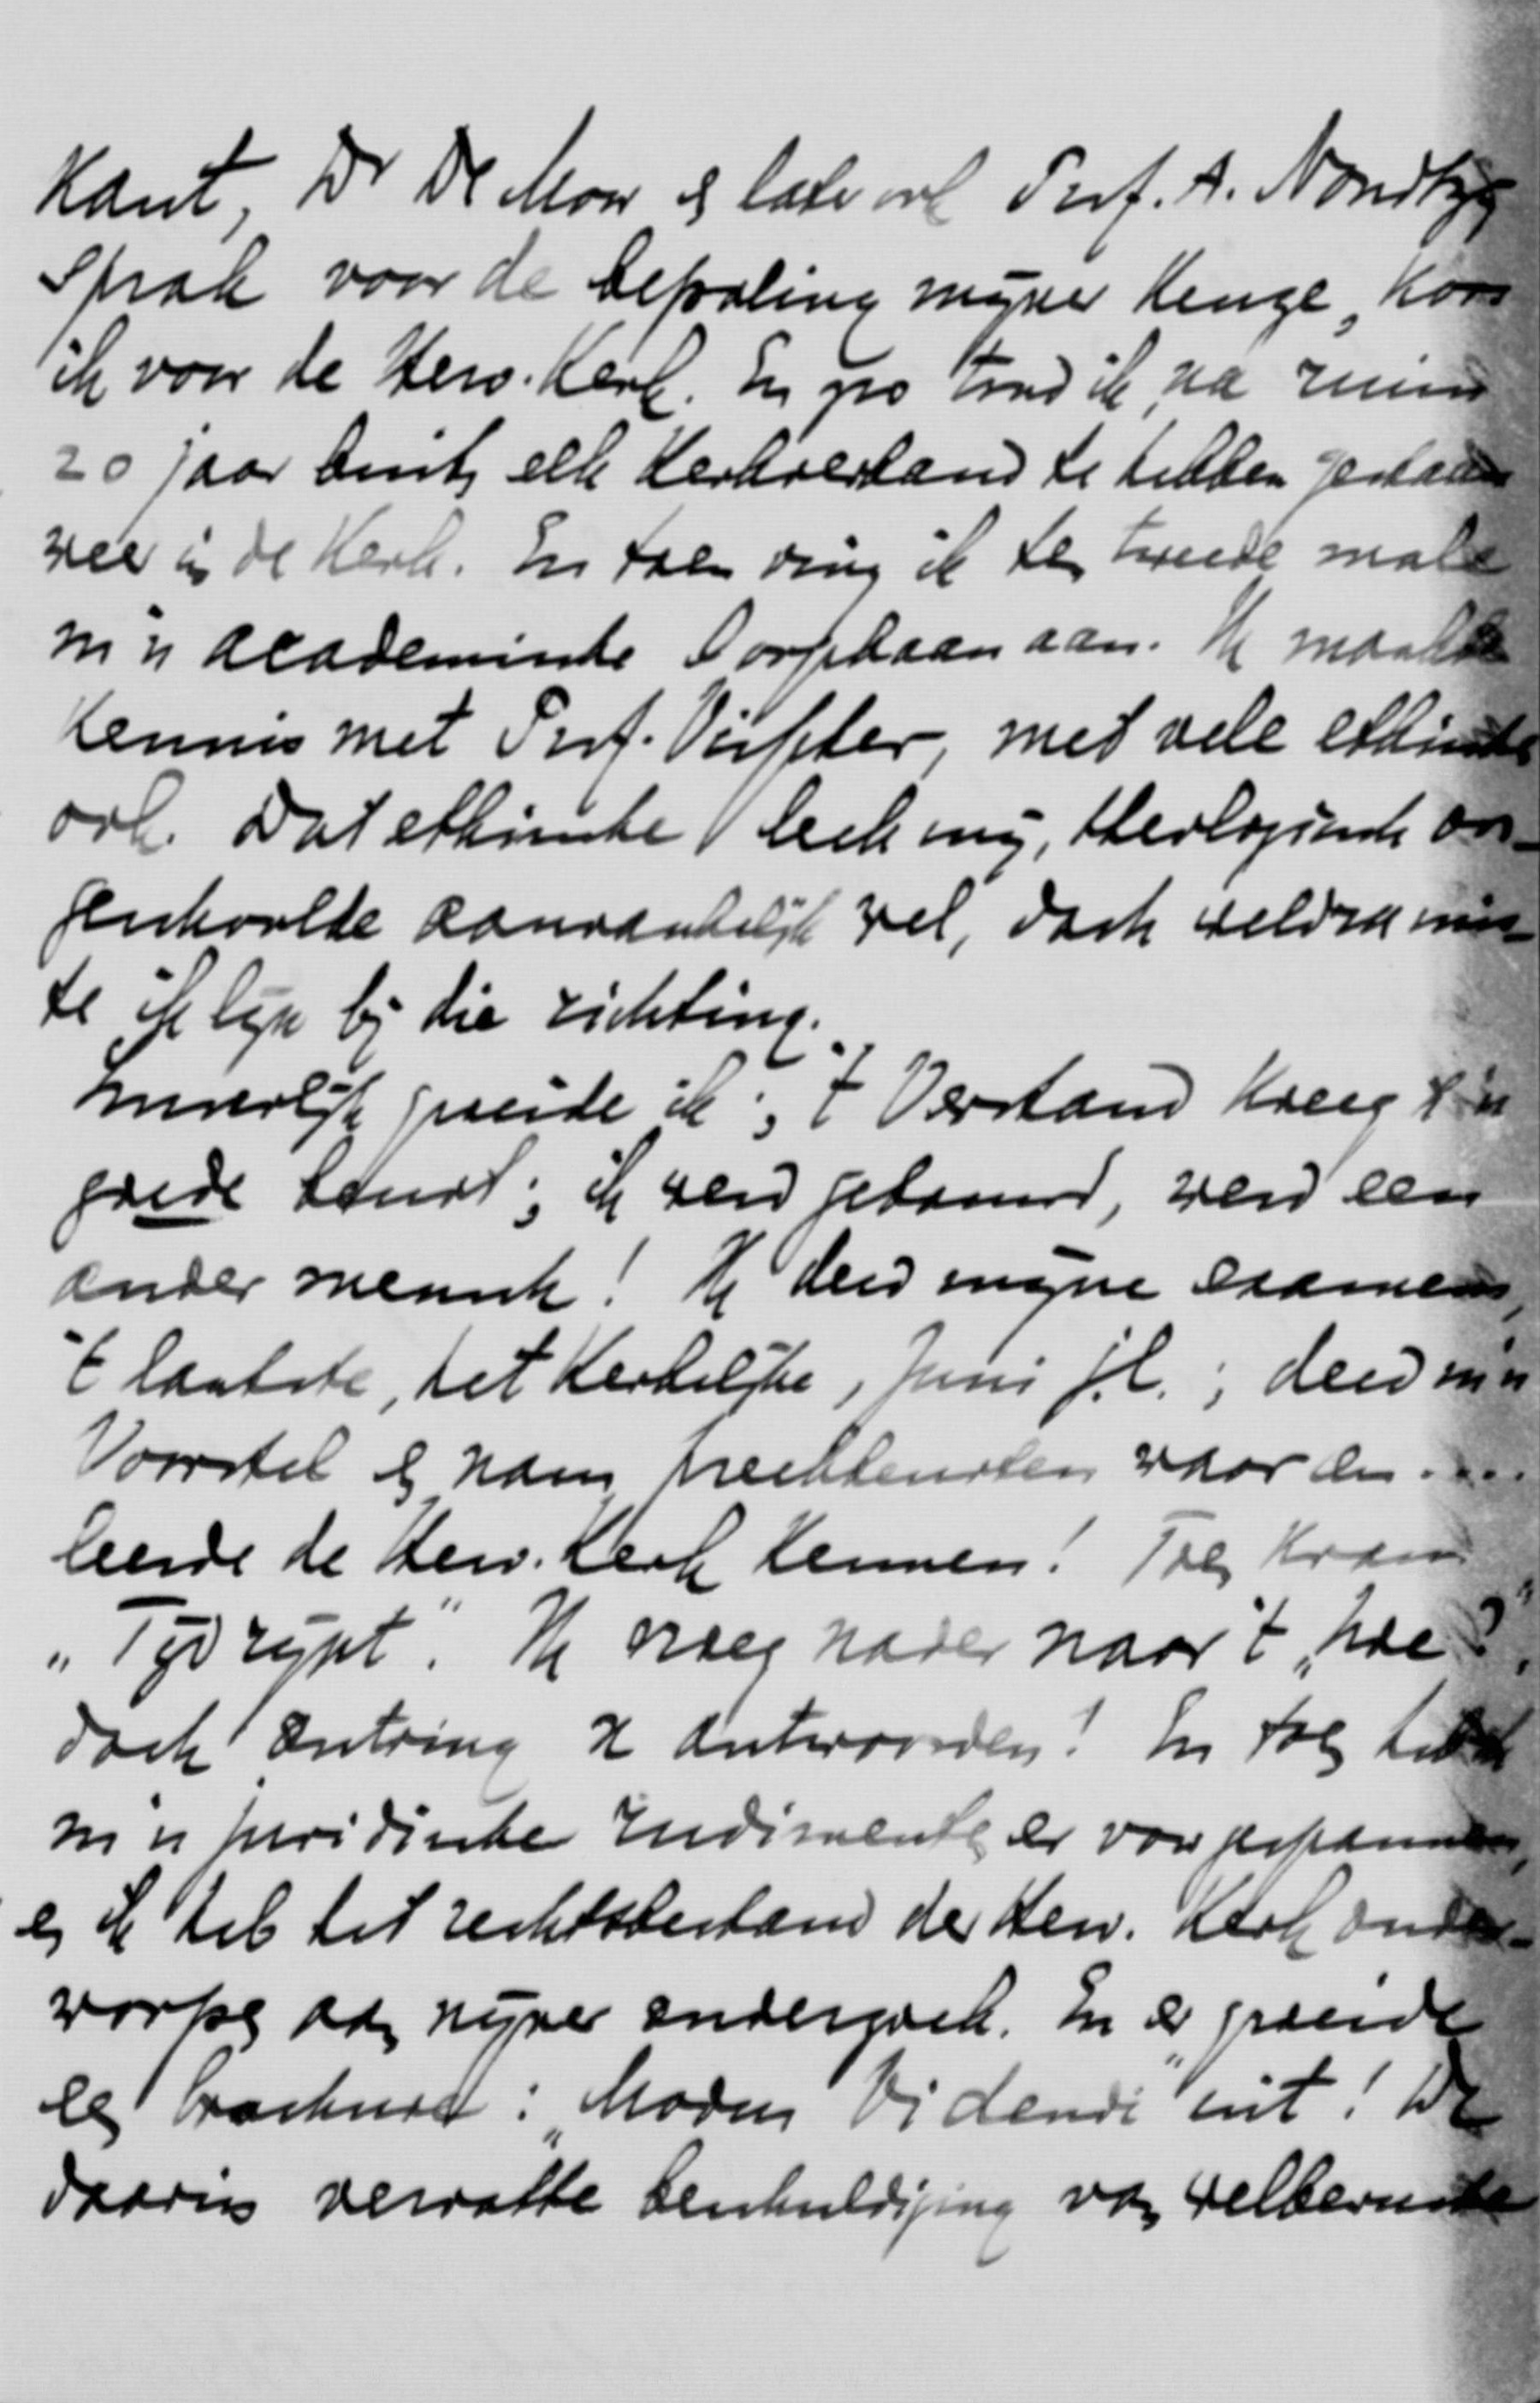 Kant, Dr De Moor en later ook Prof. A. Noordtzij
sprak voor de bepaling mijner keuze, koos
ik voor de Herv. Kerk. En zoo trad ik, na ruim
20 jaar buiten elk kerkverband te hebben gestaan
weer in de Kerk. En toen ving ik ten tweede male
m'n academische loopbaan aan. Ik maakte
kennis met Prof. Visscher, met vele ethische
ook. Dat ethische leek mij, theologisch on-
geschoolde aanvankelijk wel, doch weldra mis-
te ik lijn bij die richting.
Innerlijk groeide ik; 't Verstand kreeg z'n
goede beurt; ik werd gevormd, werd een
ander mensch! Ik deed mijne examens,
't laatste, het Kerkelijke, Juni j.l.; deed m'n
Voorstel en nam preekbeurten waar en ....
leerde de Herv. Kerk kennen! Toen kwam
"Tijdrijpt". Ik vroeg nader naar 't "hoe?",
doch ontving n antwoorden! En toen heb ik
m'n juridische rudimenten er voor gespannen,
en ik heb het rechtsbestand der Herv. Kerk onder-
worpen aan mijner onderzoek. En er groeide
een brochure: "Modus Videndi" uit! De
daarin vervatte beschuldiging van welbewuste